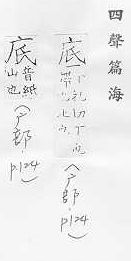 四聲篇海
底 丁礼切下也
滯也止也
(广部 p124)
底 音紙
山也
(广部 p124)